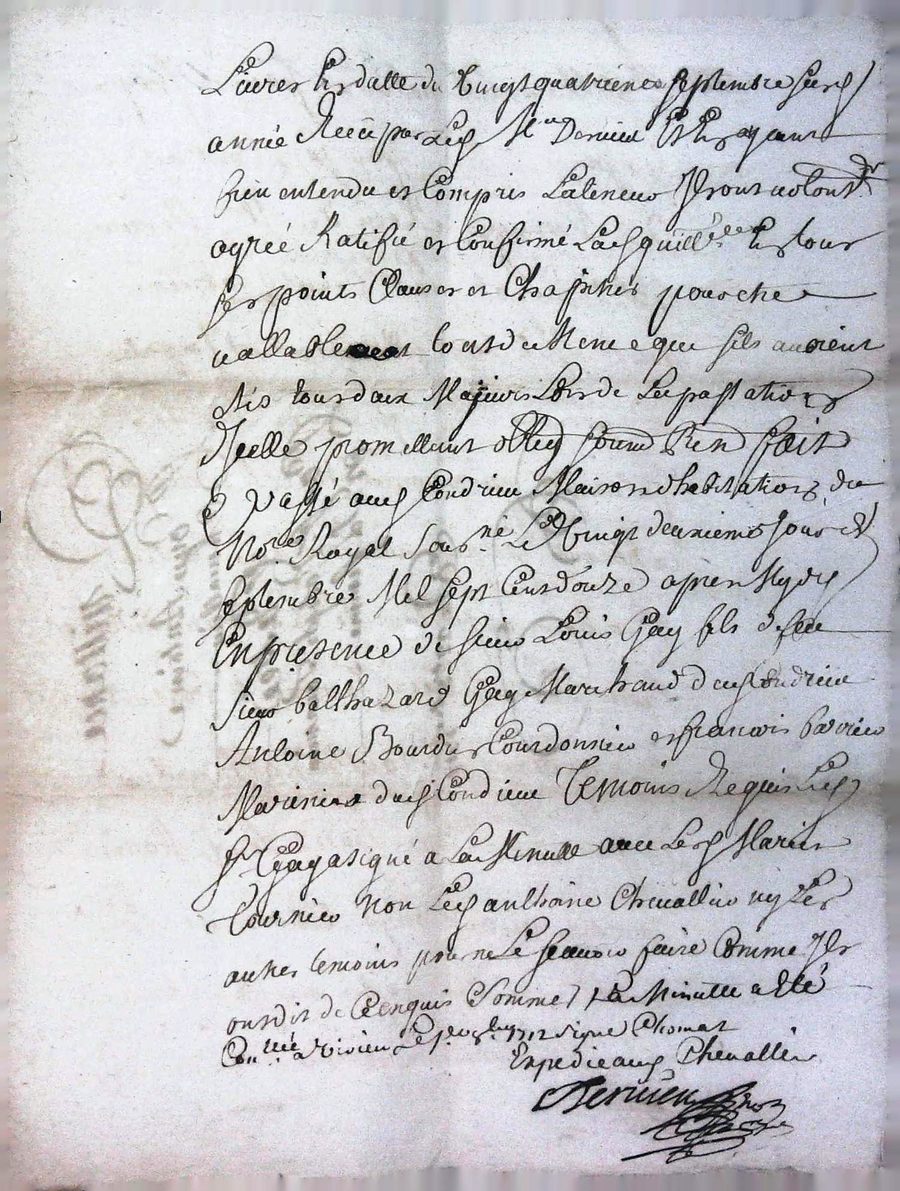 Livres en datte du vingtquatrieme septembre
année Receü par Led. Me Dervieu Et Les ayant
bien entendu et Compris La teneur Ils ont volont
agréé Ratifié et Confirmé Lad. quitt en tous
ses points Clauses et Chapitres pour etre
vallable tout de Meme que sils avoient
étés tous deux Majeurs Lors de La passation
Icelle promettant oblig Fait
Passé aud. Condrieu Maison d'habitation du
Not.re Royal Sousné Le Vingt deuxieme Jour de
septembre Mil Sept Cens douze apres Mydy
En presence de sieur Louis Gay fils de feu
sieur balthazard Gay Marchand dud. Condrieu
Antoine Bourdin Cordonnier et francois
Marinier dud. Condrieu Temoins Requis Led.
Sr. Gay a signé a La Minutte avec Led. Marin
tournier Non Led. anthoine Chevallier ny Les
autres temoins pour ne Le scavoir faire Comme Ils
ont dit de Ce enquis Sommés La Minutte a Eté
Conllée a Vivien Le 1712 signé Thomas
Expedié aud. Chevallier
Dervieu